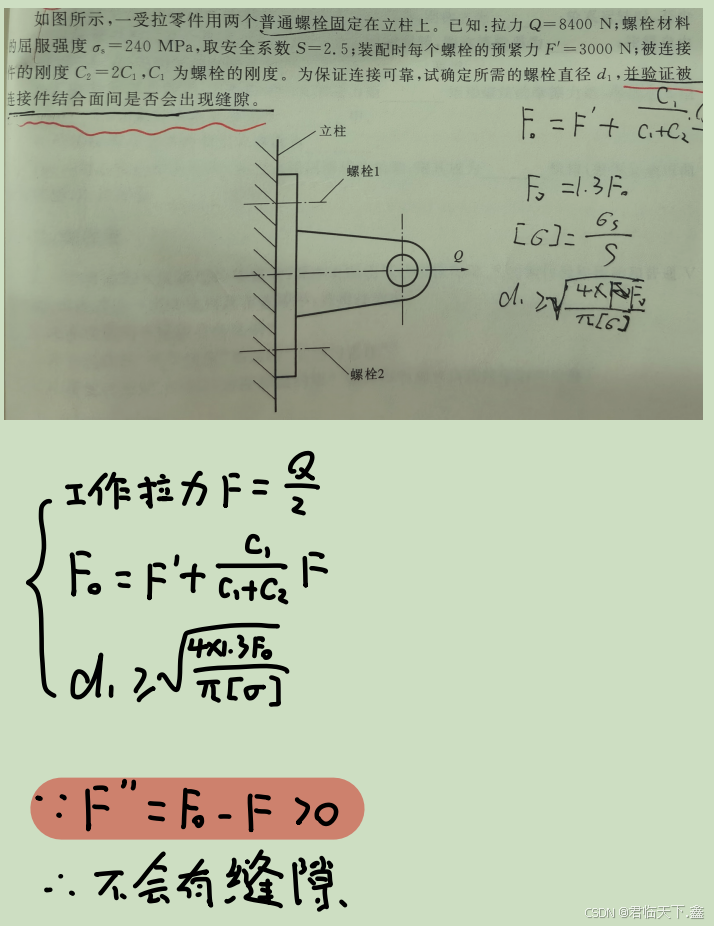 如图所示,一受拉零件用两个普通螺栓固定在立柱上。已知:拉力 Q=8400 N;螺栓材料
的屈服强度 σs=240 MPa,取安全系数 S=2.5;装配时每个螺栓的预紧力 F′=3000 N;被连接
件的刚度 C₂=2C₁,C₁ 为螺栓的刚度。为保证连接可靠,试确定所需的螺栓直径 d₁,并验证被
连接件结合面间是否会出现缝隙。
立柱
螺栓1
Q
螺栓2
F₀ = F′ + C₁/(C₁+C₂)
=1.3F₀
[σ]= σs/S
d₁ ≥ √(4×
π[σ]
工作拉力 F = Q/2
F₀ = F′+ C₁/(C₁+C₂) F
d₁ ≥ √(4×1.3F₀/π[σ])
∵ F″ = F₀ - F >0
∴ 不会有缝隙、
CSDN @君临天下.鑫